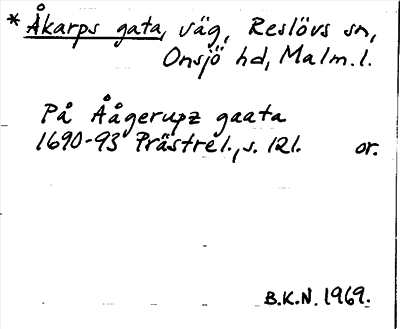 * Åkarps gata, väg, Reslövs sn,
Onsjö hd, Malm. l.
På Åågerupz gaata
1690-93 Prästrel., s. 121. or.
B.K.N. 1969.